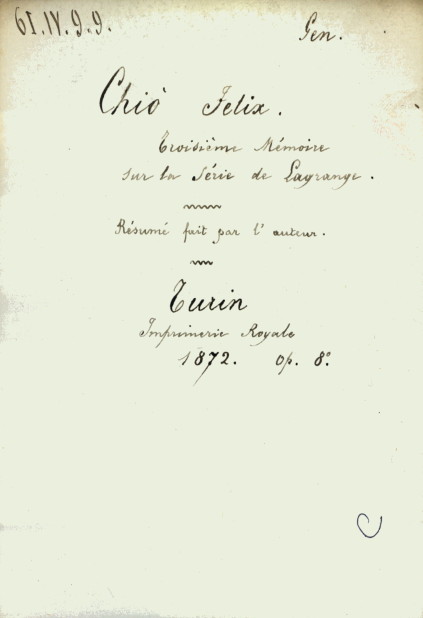 61.IV.9.9.
Gen.
Chiò Felix.
Troisième Mémoire
sur la Série de Lagrange.
Résumé fait par l'auteur.
Turin
Imprimerie Royale
1872. op. 8º.